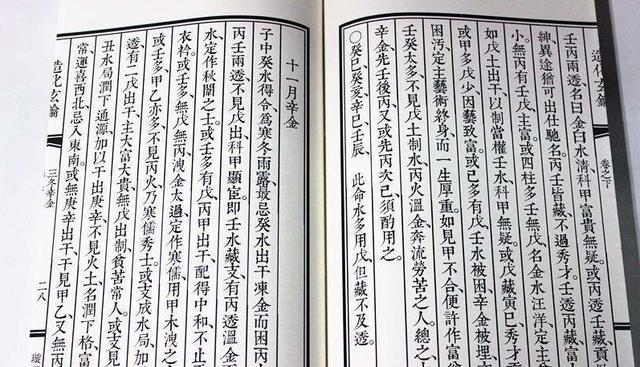 造化玄鑰
卷之下
壬丙兩透名曰金白水清科甲富貴無疑。或丙透壬藏貢
紳異途倫可出仕馳名丙壬皆藏不過秀才壬透丙藏富
小。無丙有壬戊主富。或四柱多壬無戊名金水汪洋定主
如戊土出干以制當權壬水科甲無疑。或戊藏寅巳秀才
或甲多戊少、因藝致富或己多有戊、壬水被困辛金被埋、
困汚定主藝術終身而一生厚重。如見甲不合便許作富
壬癸太多不見戊土制水丙火溫金奔流勞苦之人。總之
辛金先壬後丙又或先丙次己須酌用之。
○癸巳、癸亥、辛巳、壬辰 此命水多用戊但藏不及透。
十一月辛金
子中癸水得令、為寒冬雨露最忌癸水出干凍金而困丙
丙壬兩透不見戊出科甲顯宦。即壬水藏支有丙透溫金
水定作秋闈之士。或壬多有戊、丙甲出干、配得中和不止
衣衿。或壬多、無戊、無丙、洩金太過、定作寒儒用甲木洩之
或壬多、甲乙亦多不見丙火乃寒儒秀士。或支成水局加
透、有二戊出干、主大富大貴無戊出制、貧苦常人。或支見
丑水局潤下通源加以干出庚辛不見火土名潤下格富
常運喜西北忌入東南。或無庚辛出干、干見甲乙又無丙
造化玄鑰
三冬辛金
二八